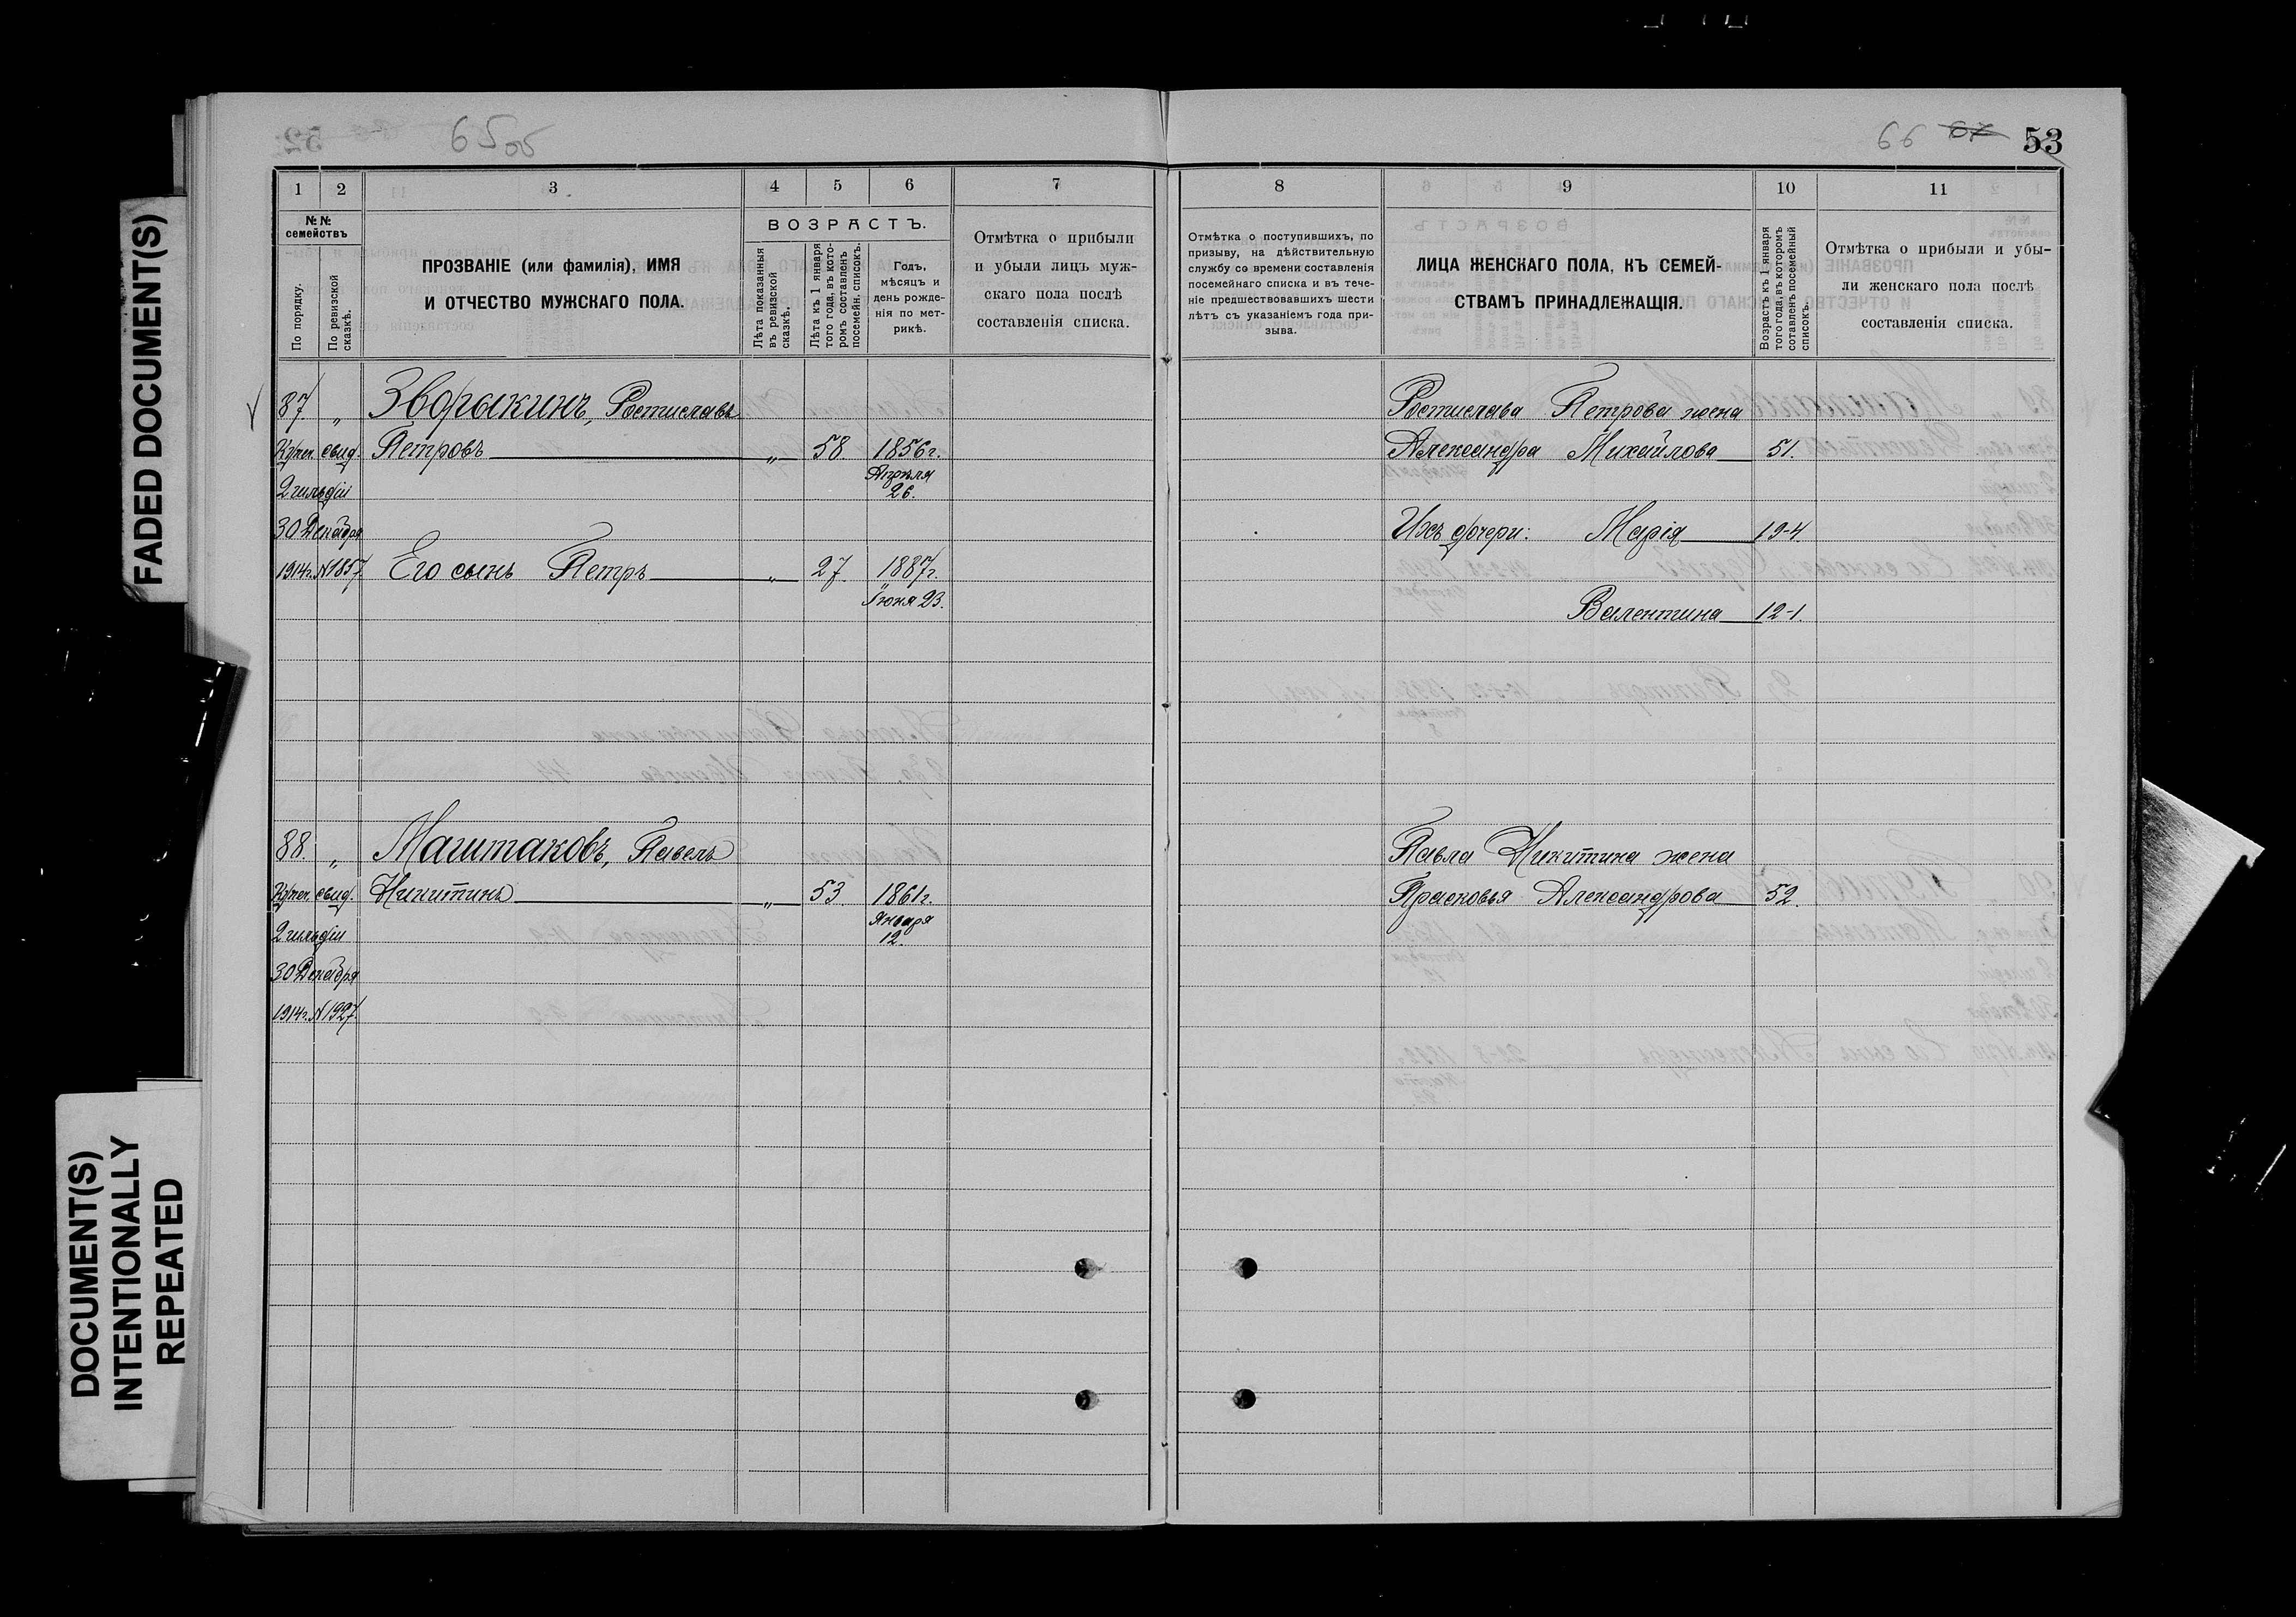 FADED DOCUMENT(S)
DOCUMENT(S)
INTENTIONALLY
REPEATED
65 об
66 67 53
1 2 3 4 5 6 7 8 9 10 11
№№
семействъ
По порядку.
По ревизской
сказкѣ.
ПРОЗВАНІЕ (или фамилія), ИМЯ
И ОТЧЕСТВО МУЖСКАГО ПОЛА.
ВОЗРАСТЪ.
Лѣта показанныя
въ ревизской
сказкѣ.
Лѣта къ 1 января
того года, въ кото-
ромъ составленъ
посемейн. списокъ.
Годъ,
мѣсяцъ и
день рожде-
нія по мет-
рикѣ.
Отмѣтка о прибыли
и убыли лицъ муж-
скаго пола послѣ
составленія списка.
Отмѣтка о поступившихъ, по
призыву, на дѣйствительную
службу со времени составленія
посемейнаго списка и въ тече-
ніе предшествовавшихъ шести
лѣтъ съ указаніемъ года при-
зыва.
ЛИЦА ЖЕНСКАГО ПОЛА, КЪ СЕМЕЙ-
СТВАМЪ ПРИНАДЛЕЖАЩІЯ.
Возрастъ къ 1 января
того года, въ которомъ
составленъ посемейный
списокъ.
Отмѣтка о прибыли и убы-
ли женскаго пола послѣ
составленія списка.
87. „ Зворыкинъ, Ростиславъ
Купеч. свид. Петровъ „ 58 1856 г.
Апрѣля
26.
2 гильдіи
30 Декабря
1914 г. № 1857. Его сынъ Петръ „ 27. 1887 г.
Іюня 23.
Ростислава Петрова жена
Александра Михайлова 51.
Ихъ дочери: Марія 19-4
Валентина 12-1.
88. „ Магштаковъ, Павелъ
Купеч. свид. Никитинъ „ 53. 1861 г.
Января
12.
2 гильдіи
30 Декабря
1914 г. № 1927.
Павла Никитина жена
Прасковья Александрова 52.